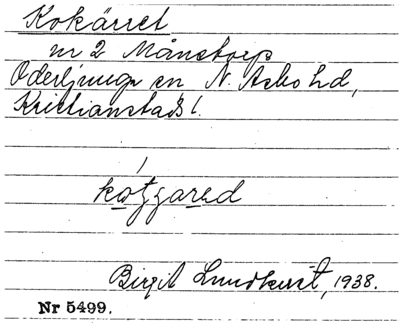 Kokärret
nr 2 Månstorp
Oderljunga sn N. Åsbo hd,
Kristianstads l.
Birgit Lundkvist, 1938.
Nr 5499.